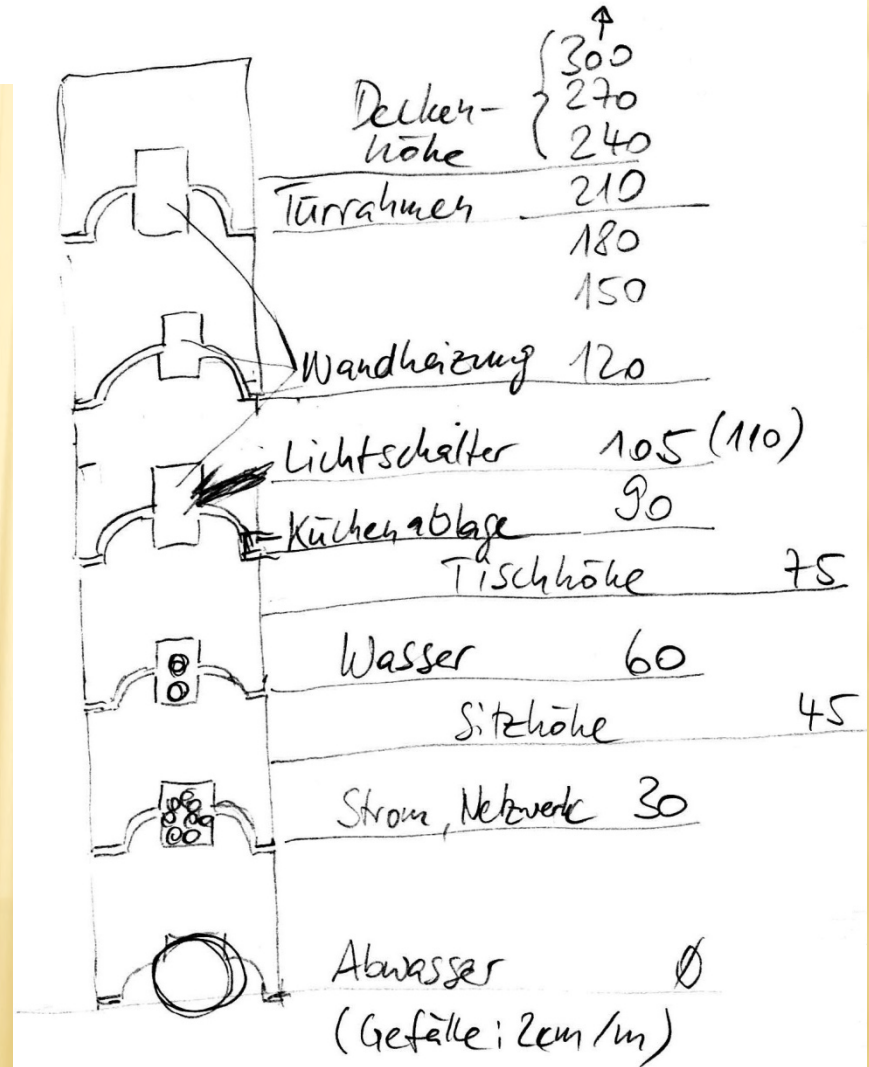 ↑
300
Decken- { 270
höhe 240
Türrahmen 210
180
150
Wandheizung 120
Lichtschalter 105 (110)
Küchenablage 90
Tischhöhe 75
Wasser 60
Sitzhöhe 45
Strom, Netzwerk 30
Abwasser Ø
(Gefälle: 2cm/m)